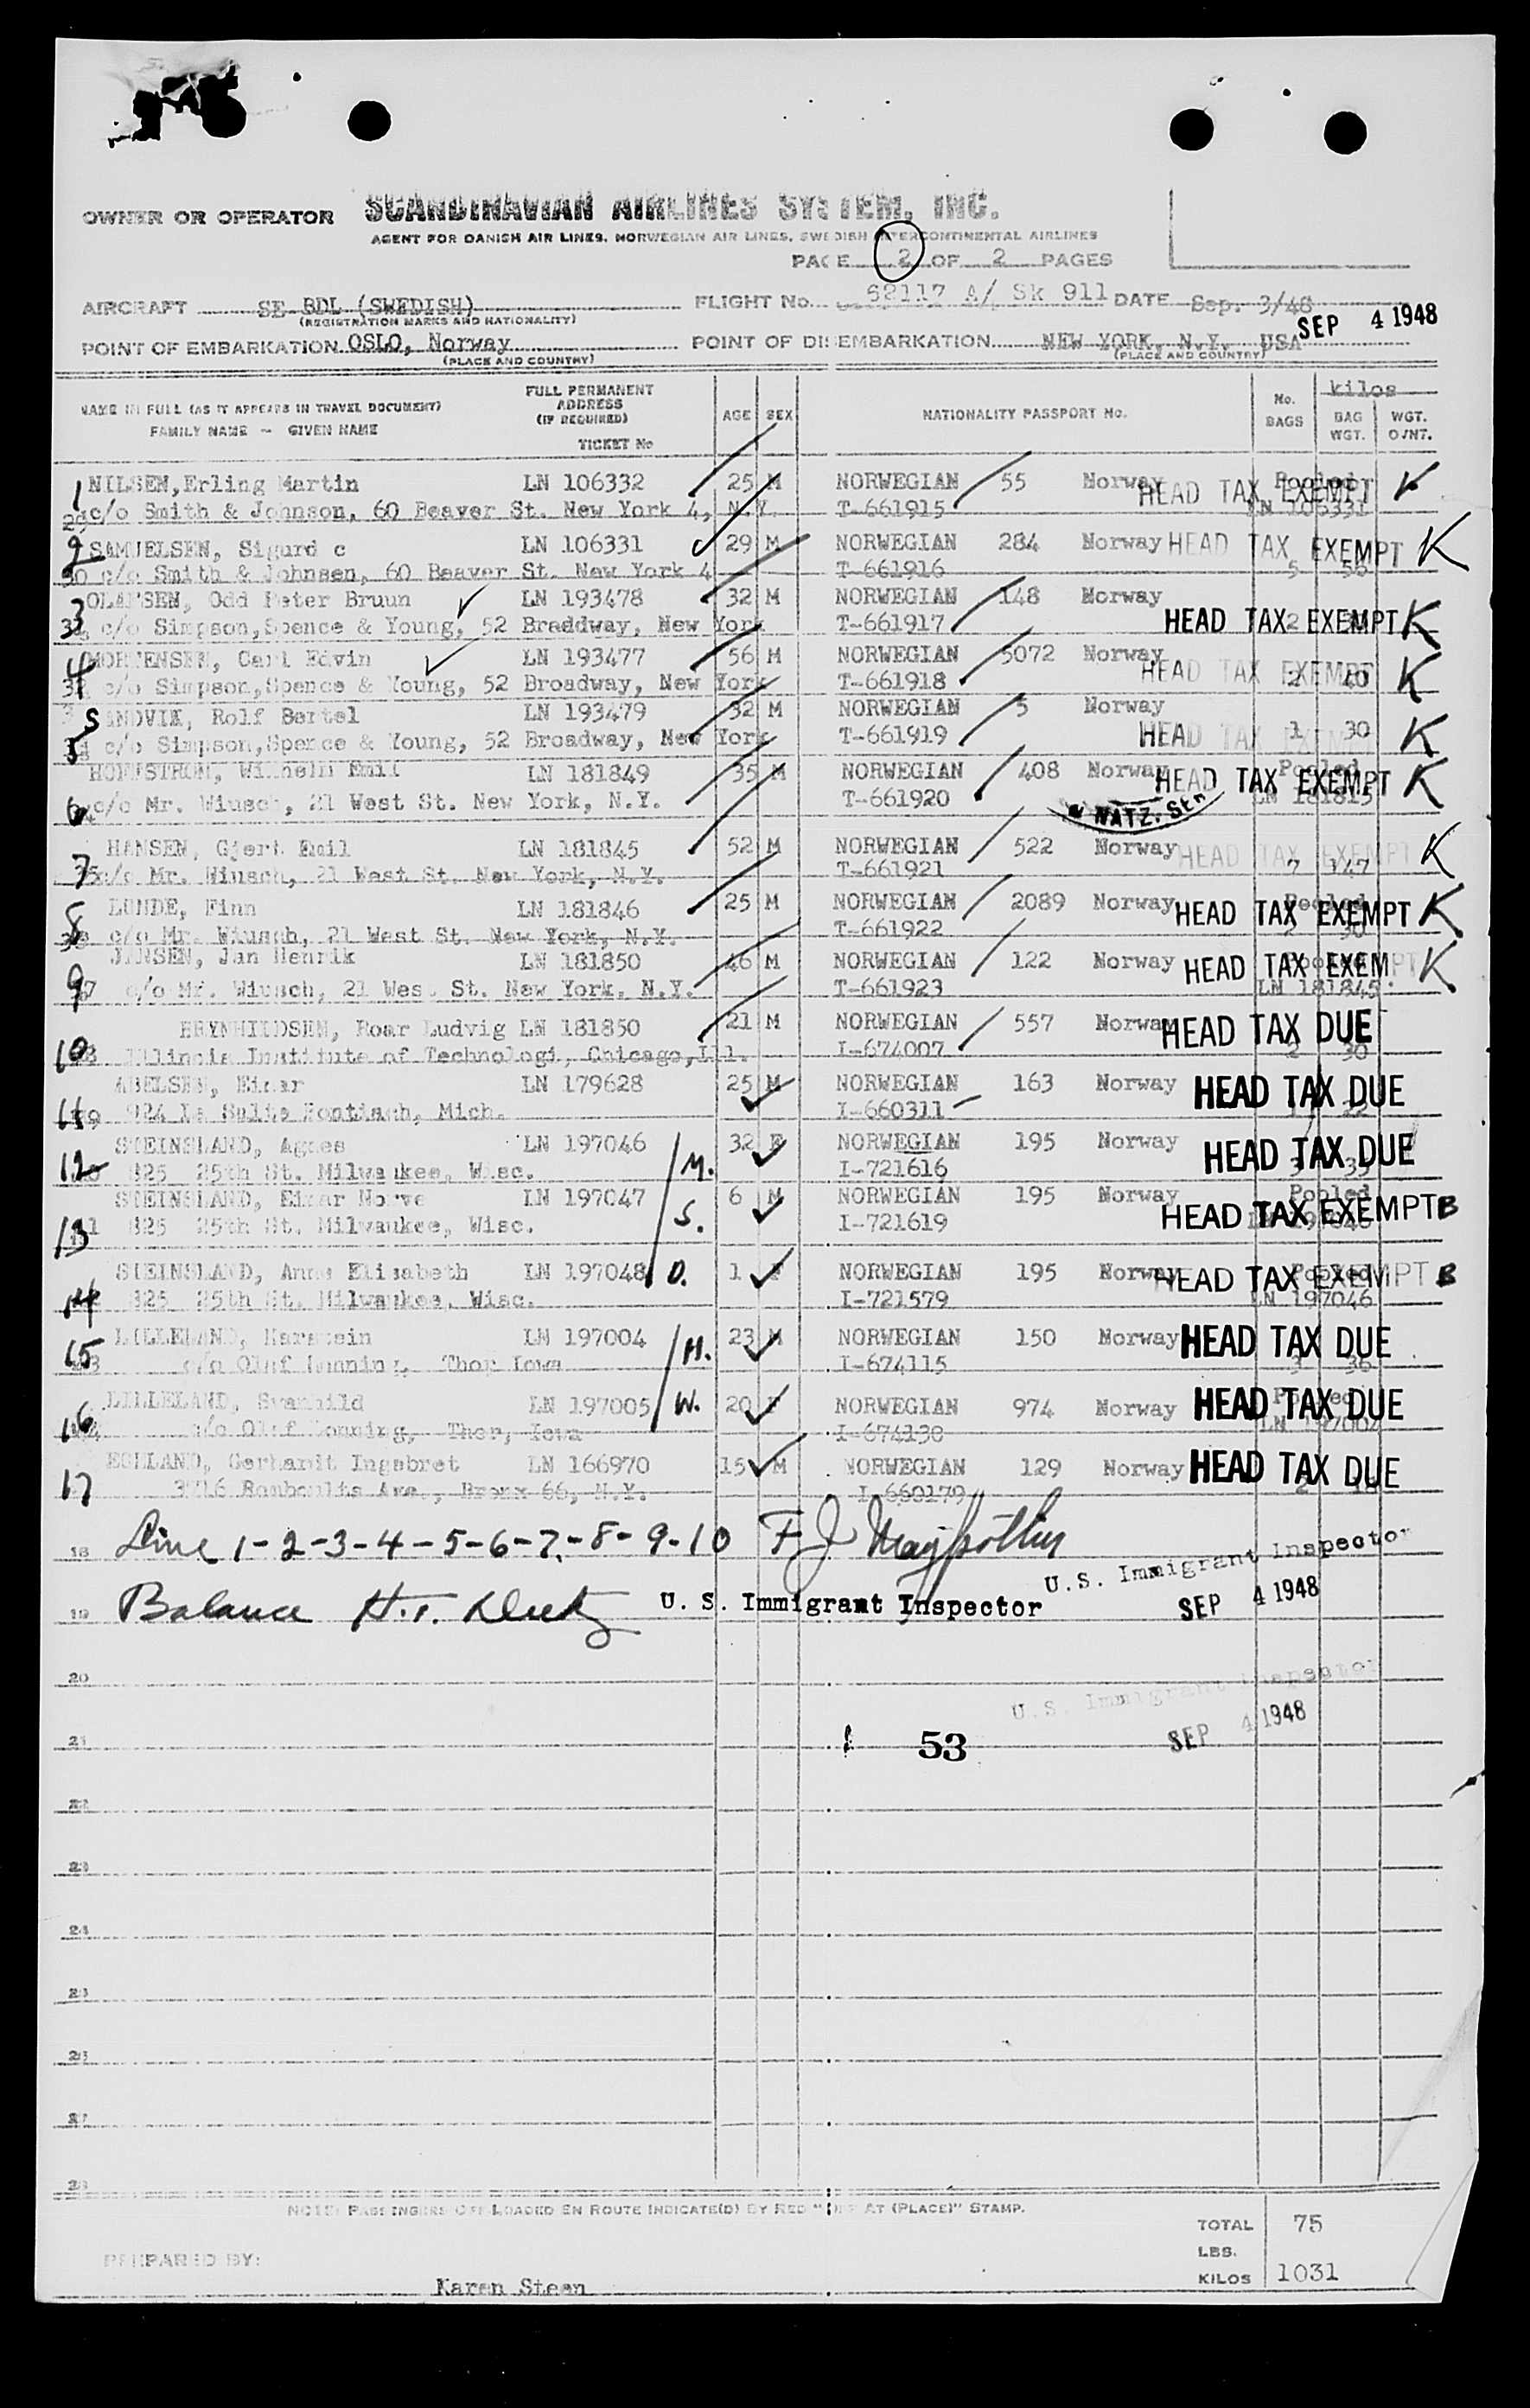 OWNER OR OPERATOR SCANDINAVIAN AIRLINES SYSTEM, INC.
AGENT FOR DANISH AIR LINES, NORWEGIAN AIR LINES, SWEDISH INTERCONTINENTAL AIRLINES
PAGE 2 OF 2 PAGES
AIRCRAFT SE BDL (SWEDISH) FLIGHT No. 62117 A/ Sk 911 DATE Sep. 3/48
(REGISTRATION MARKS AND NATIONALITY)
SEP 4 1948
POINT OF EMBARKATION OSLO, Norway POINT OF DISEMBARKATION NEW YORK, N.Y. USA
(PLACE AND COUNTRY) (PLACE AND COUNTRY)
NAME IN FULL (AS IT APPEARS IN TRAVEL DOCUMENT) FAMILY NAME - GIVEN NAME
FULL PERMANENT ADDRESS (IF REQUIRED) TICKET No
AGE SEX NATIONALITY PASSPORT No. No. BAGS kilos BAG WGT. WGT. O/NT.
1 NILSEN, Erling Martin LN 106332 25 M NORWEGIAN 55 Norway Pooled HEAD TAX EXEMPT K
29 c/o Smith & Johnson, 60 Beaver St. New York 4, N.Y. T-661915 LN 106331
2 SAMUELSEN, Sigurd c LN 106331 29 M NORWEGIAN 284 Norway HEAD TAX EXEMPT K
30 c/o Smith & Johnsen, 60 Beaver St. New York 4 T-661916 5 58
3 OLAFSEN, Odd Peter Bruun LN 193478 32 M NORWEGIAN 148 Norway
c/o Simpson,Spence & Young, 52 Braddway, New York T-661917 HEAD TAX EXEMPT 2 K
4 MORTENSEN, Carl Edvin LN 193477 56 M NORWEGIAN 5072 Norway
c/o Simpson,Spence & Young, 52 Broadway, New York T-661918 HEAD TAX EXEMPT 2 40 K
5 SANDVIK, Rolf Bertel LN 193479 32 M NORWEGIAN 5 Norway
c/o Simpson,Spence & Young, 52 Broadway, New York T-661919 HEAD TAX EXEMPT 1 30 K
HOFFSTROM, Wilhelm Emil LN 181849 35 M NORWEGIAN 408 Norway Pooled HEAD TAX EXEMPT K
6 c/o Mr. Wiusch, 21 West St. New York, N.Y. T-661920 LN 181815
NATZ. SER
HANSEN, Gjert Emil LN 181845 52 M NORWEGIAN 522 Norway HEAD TAX EXEMPT K
7 c/o Mr. Wiusch, 21 West St. New York, N.Y. T-661921 7 147
8 LUNDE, Finn LN 181846 25 M NORWEGIAN 2089 Norway Pooled HEAD TAX EXEMPT K
c/o Mr. Wiusch, 21 West St. New York, N.Y. T-661922 2 30
JENSEN, Jan Henrik LN 181850 46 M NORWEGIAN 122 Norway HEAD TAX EXEMPT K
9 c/o Mr. Wiusch, 21 West St. New York, N.Y. T-661923 LN 181845
BRYNHILDSEN, Roar Ludvig LN 181850 21 M NORWEGIAN 557 Norway HEAD TAX DUE
10 Illinois Institute of Technologi, Chicago, Ill. I-674007 2 30
ABELSEN, Einar LN 179628 25 M NORWEGIAN 163 Norway HEAD TAX DUE
11 924 La Salle Pontiach, Mich. I-660311
STEINSLAND, Agnes LN 197046 M. 32 F NORWEGIAN 195 Norway HEAD TAX DUE
12 825 25th St. Milwaukee, Wisc. I-721616 3 35
STEINSLAND, Einar Norve LN 197047 S. 6 M NORWEGIAN 195 Norway Pooled
13 825 25th St. Milwaukee, Wisc. I-721619 HEAD TAX EXEMPT B LN 197046
STEINSLAND, Anne Elisabeth LN 197048 D. 1 F NORWEGIAN 195 Norway Pooled HEAD TAX EXEMPT B
14 825 25th St. Milwaukee, Wisc. I-721579 LN 197046
LILLELAND, Marstein LN 197004 H. 23 M NORWEGIAN 150 Norway HEAD TAX DUE
15 c/o Olaf Lonning, Thor Iowa I-674115 3 36
LILLELAND, Svanhild LN 197005 W. 20 F NORWEGIAN 974 Norway Pooled HEAD TAX DUE
16 c/o Olaf Lonning, Thor, Iowa I-674138 LN 197004
EGELAND, Gerhardt Ingebret LN 166970 15 M NORWEGIAN 129 Norway HEAD TAX DUE
17 Ave., Bronx 66, N.Y. I-660179 2
18 Line 1-2-3-4-5-6-7-8-9-10 F J
U.S. Immigrant Inspector
19 Balance H.T. U. S. Immigrant Inspector SEP 4 1948
20
U.S. Immigrant Inspector
SEP 4 1948
21 53
22
23
24
25
26
27
28
NOTE: PASSENGERS OFF-LOADED EN ROUTE INDICATE(D) BY RED "OFF AT (PLACE)" STAMP.
TOTAL 75
LBS.
KILOS 1031
PREPARED BY:
Karen Steen